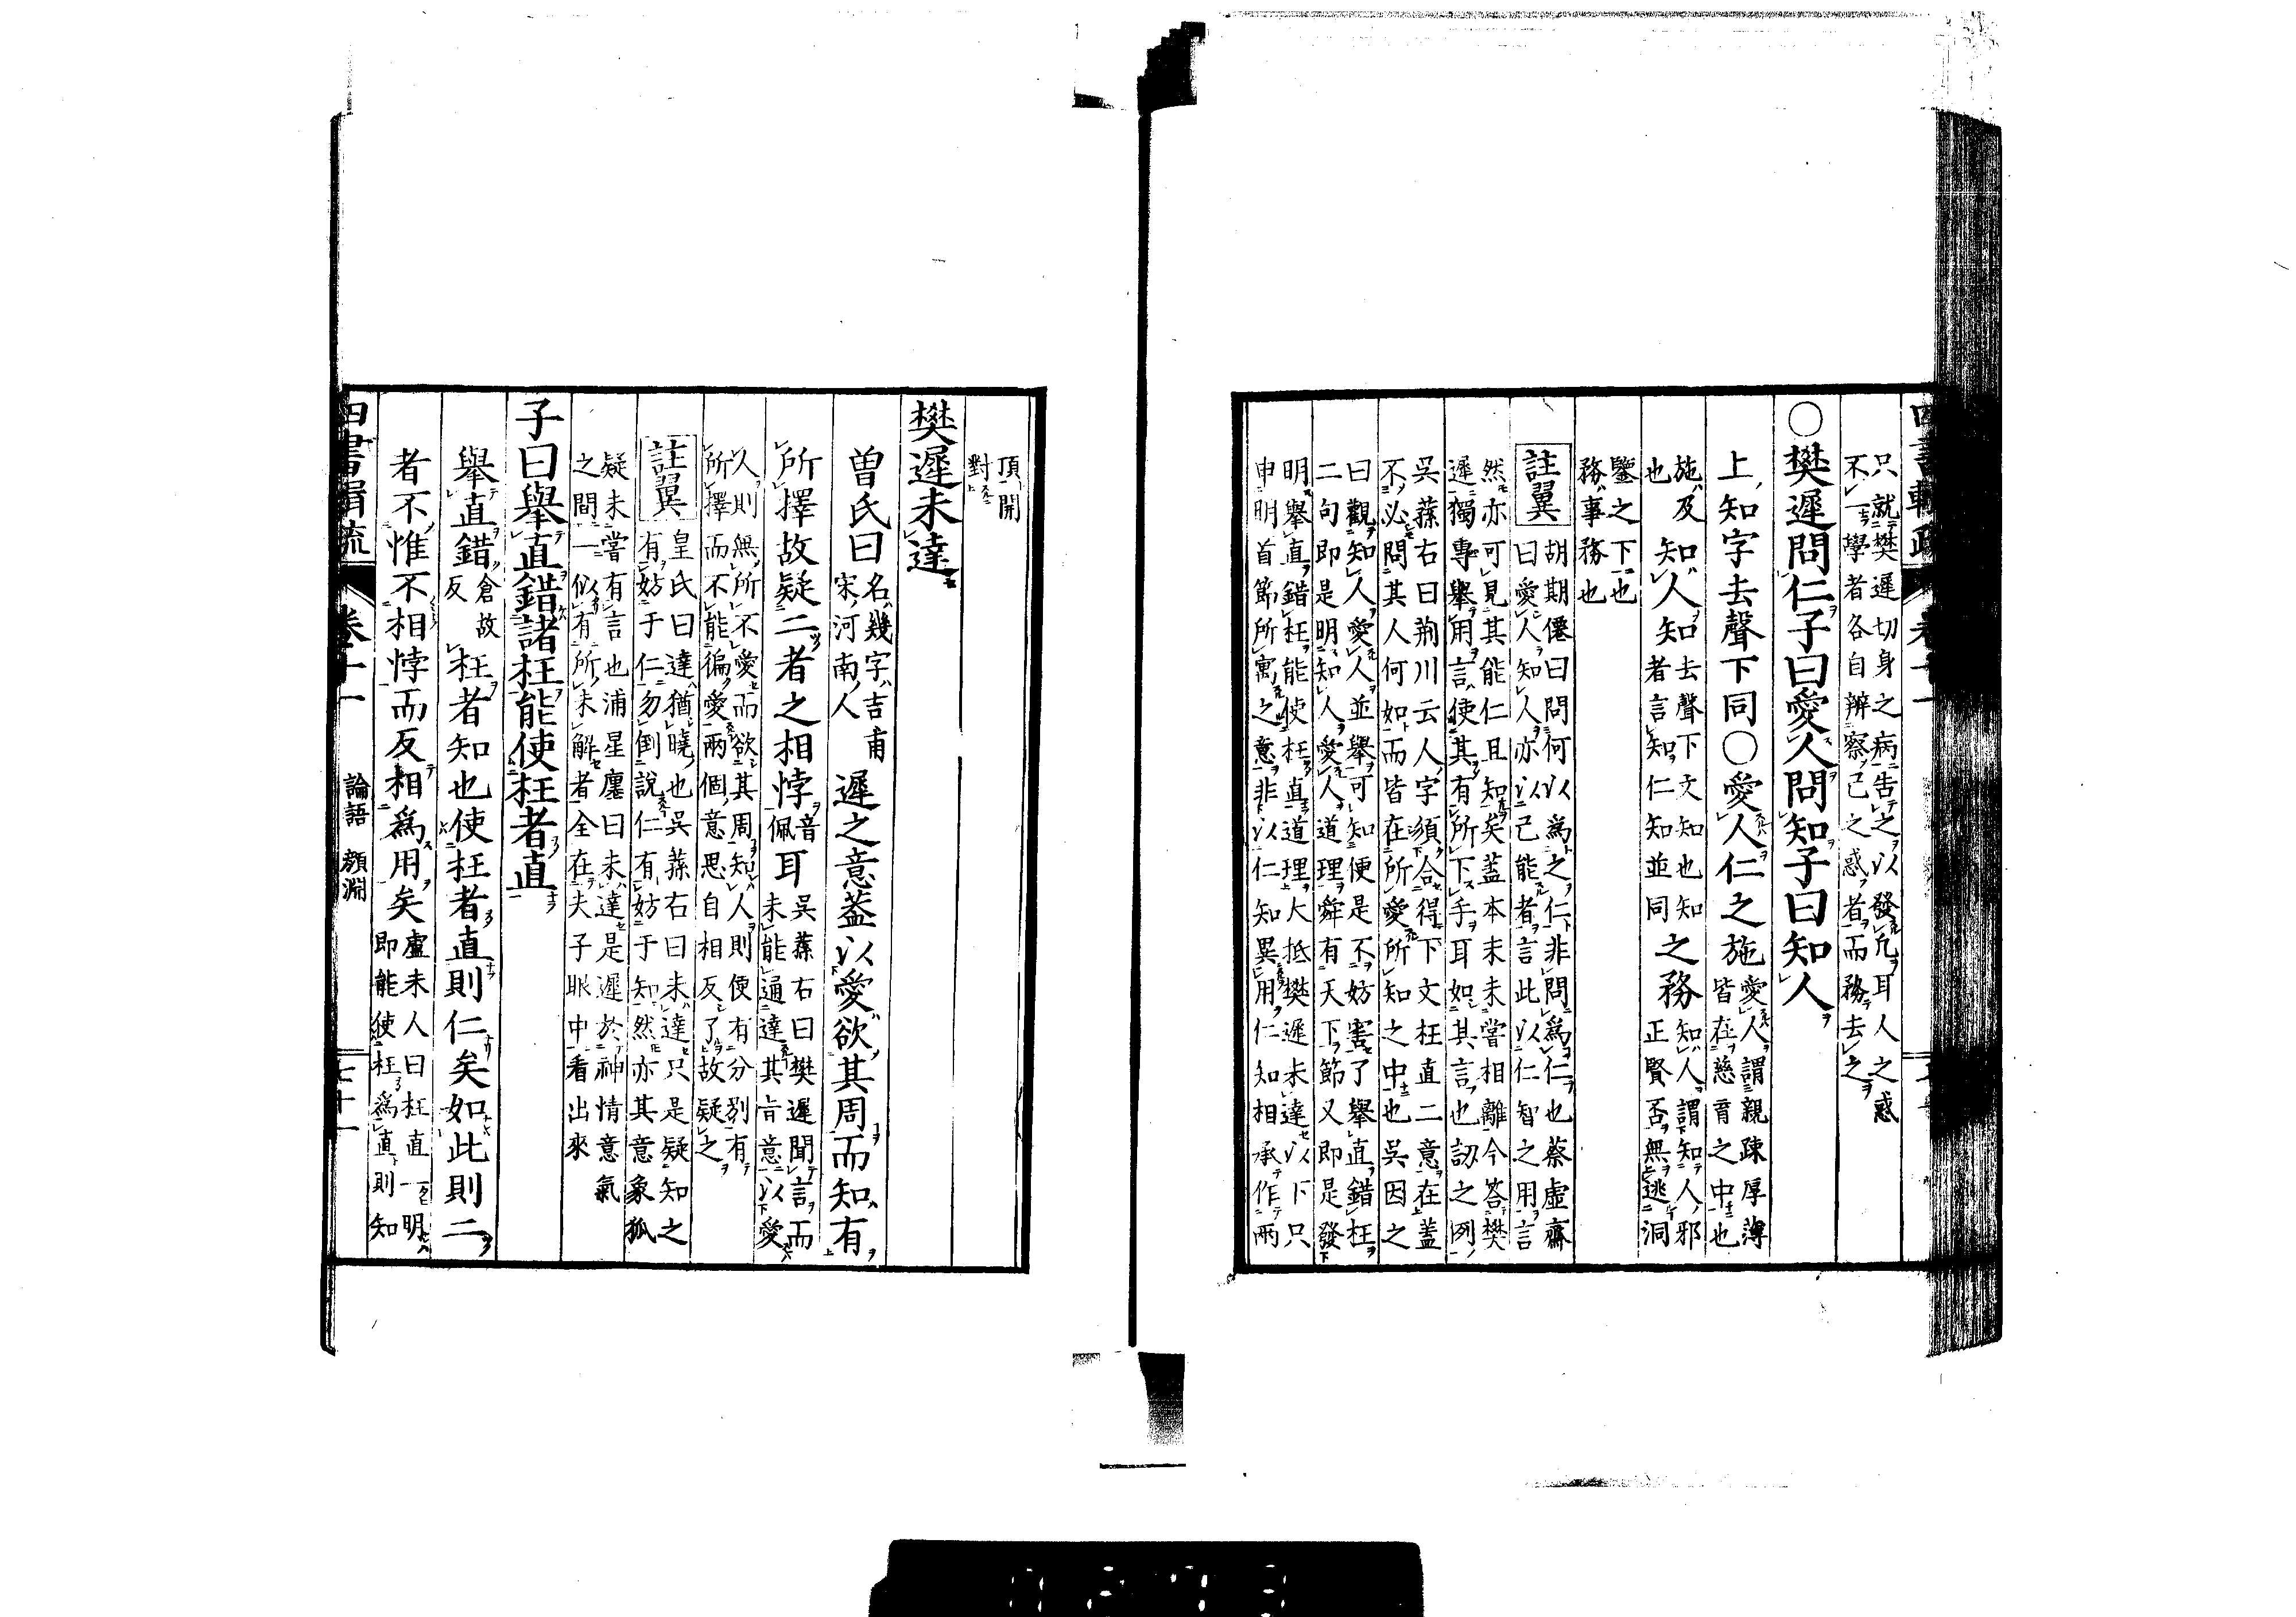 只就樊遲切身之病告之以發凡耳人之惑
不一學者各自辨察己之惑者而務去之
○樊遲問仁子曰愛人問知子曰知人
上知字去聲下同○愛人仁之施
愛人謂親疎厚薄
皆在慈育之中也
施及
也
知人知
去聲下文知也知
者言知仁知並同
之務
知人謂知人邪
正賢否無逃洞
鑒之下也
務事務也
註翼
胡期僊曰問何以為之仁非問為仁也蔡虛齋
曰愛人知人亦以己能者言此以仁智之用言
然亦可見其能仁且知矣蓋本末未嘗相離今答樊
遲獨專舉用言使其有所下手耳如其言也訒之例
吳蓀右曰荊川云人字須合得下文枉直二意在蓋
不必問其人何如而皆在所愛所知之中也吳因之
曰觀知人愛人並舉可知便是不妨害了舉直錯枉
二句即是明知人愛人道理舜有天下節又即是發
明舉直錯枉能使枉直道理大抵樊遲未達以下只
申明首節所寓之意非以仁知異用仁知相承作兩
頂開
對
樊遲未達
曾氏曰
名幾字吉甫
宋河南人
遲之意蓋以愛欲其周而知有
所擇故疑二者之相悖
音
佩
耳
吳蓀右曰樊遲聞言而
未能通達其旨意以愛
人則無所不愛而欲其周知人則便有分別有
所擇而不能徧愛兩個意思自相反了故疑之
註翼
皇氏曰達猶曉也吳蓀右曰未達只是疑知之
有妨于仁勿倒說仁有妨于知然亦其意象狐
疑未嘗有言也浦星廛曰未達是遲於神情意氣
之間一似有所未解者全在夫子眼中看出來
子曰舉直錯諸枉能使枉者直
舉直錯
倉故
反
枉者知也使枉者直則仁矣如此則二
者不惟不相悖而反相為用矣
盧未人曰枉直一明
即能使枉為直則知
四書輯疏
卷十一
論語 顏淵
七十一